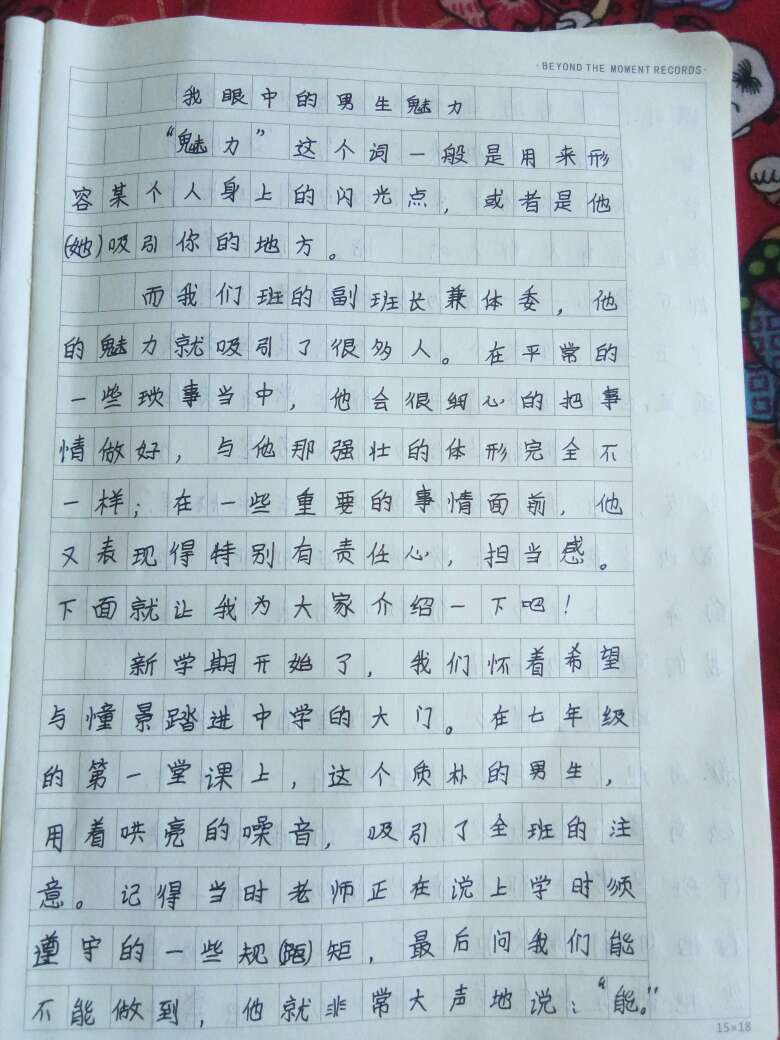 ·BEYOND THE MOMENT RECORDS·
我眼中的男生魅力
“魅力”这个词一般是用来形
容某个人身上的闪光点，或者是他
(她)吸引你的地方。
而我们班的副班长兼体委，他
的魅力就吸引了很多人。在平常的
一些琐事当中，他会很细心的把事
情做好，与他那强壮的体形完全不
一样；在一些重要的事情面前，他
又表现得特别有责任心，担当感。
下面就让我为大家介绍一下吧！
新学期开始了，我们怀着希望
与憧景踏进中学的大门。在七年级
的第一堂课上，这个质朴的男生，
用着哄亮的噪音，吸引了全班的注
意。记得当时老师正在说上学时须
遵守的一些规矩，最后问我们能
不能做到，他就非常大声地说：“能。”
15×18